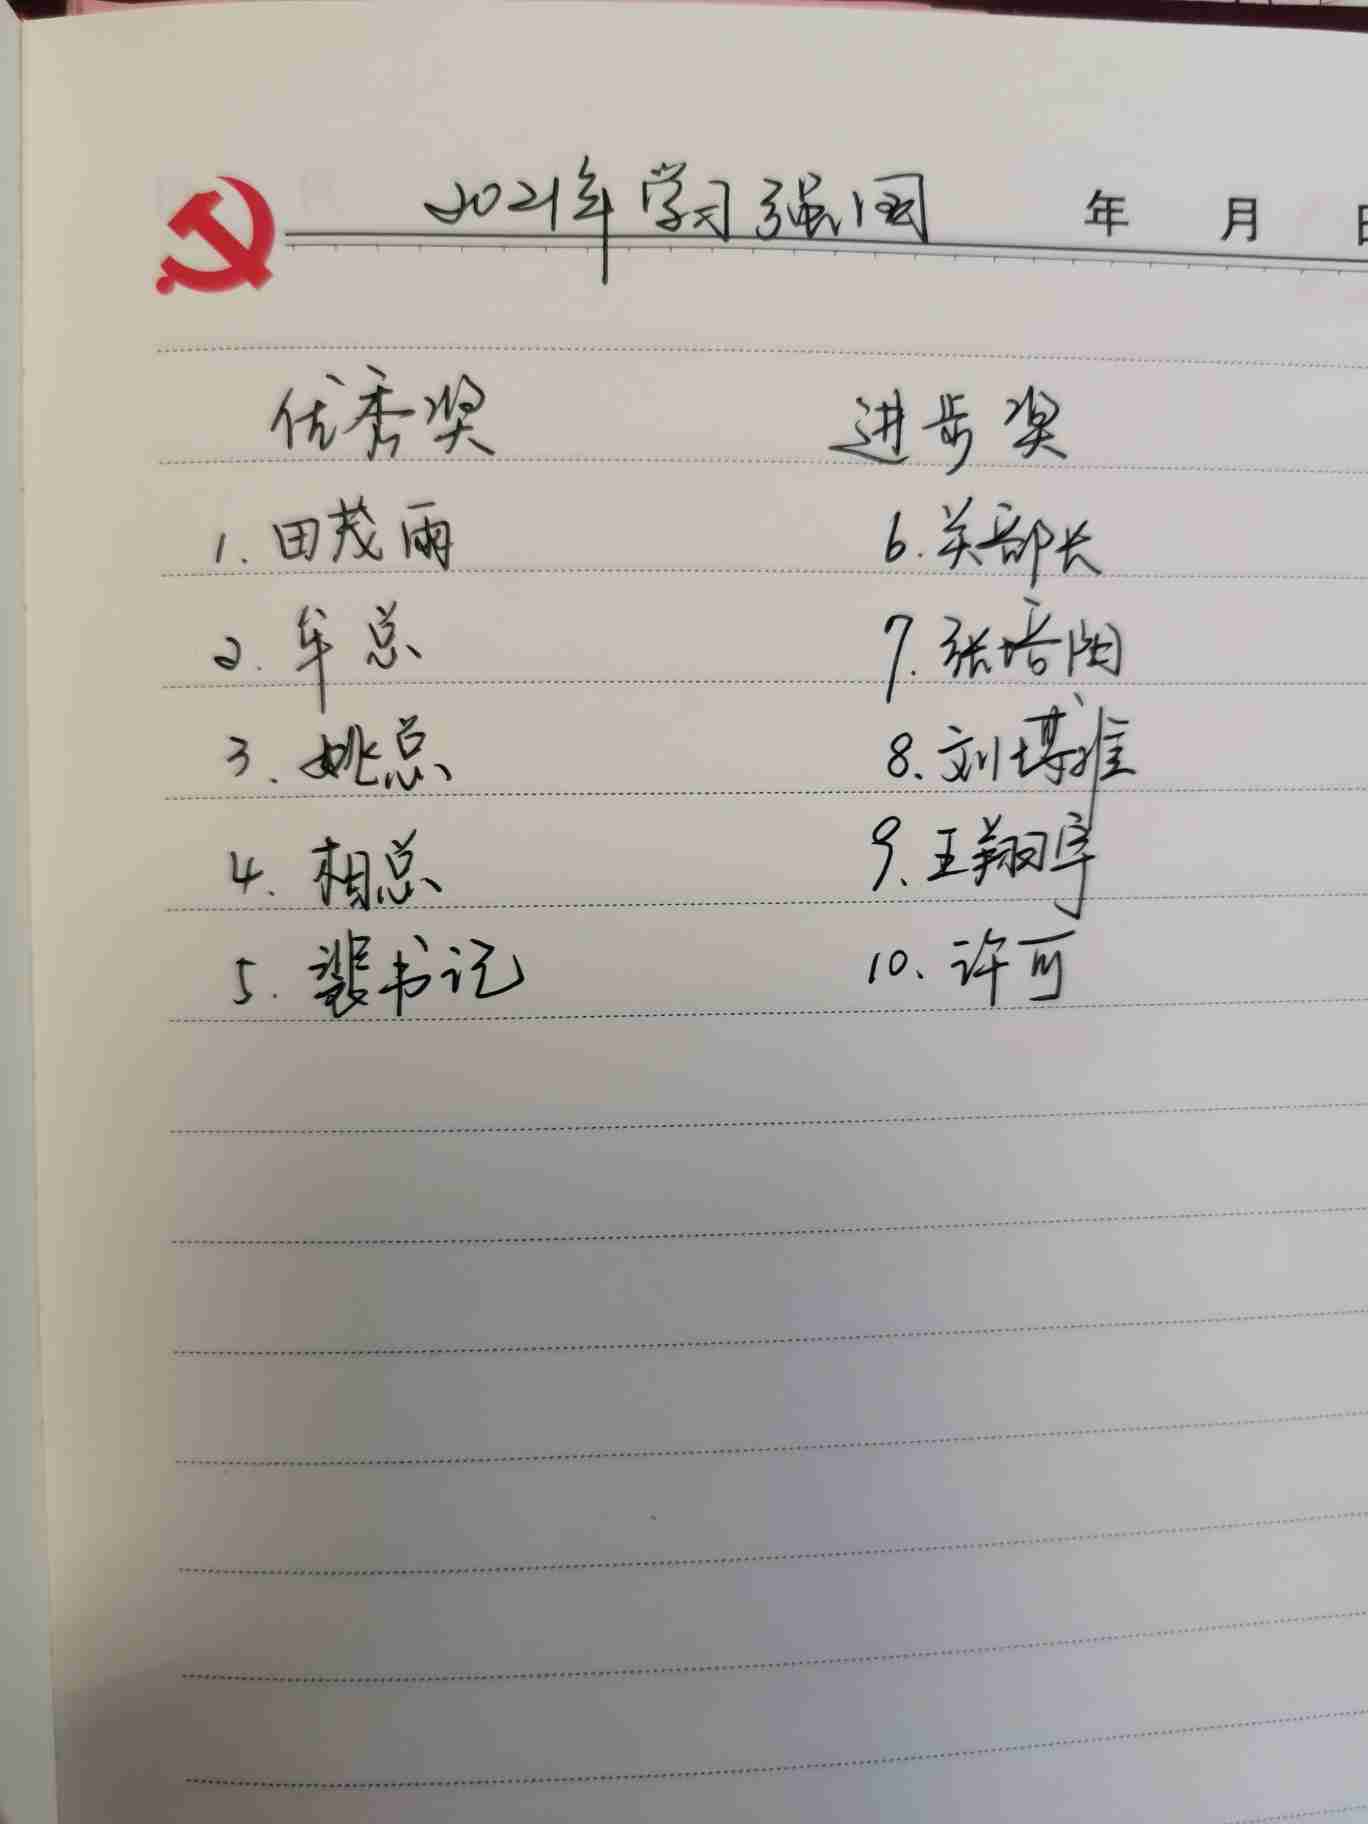 2021年学习强国
年 月 日
优秀奖 进步奖
1.田茂雨 6.关部长
2.牟总 7.张培阳
3.姚总 8.刘璞淮
4.相总 9.王翔宇
5.裴书记 10.许可